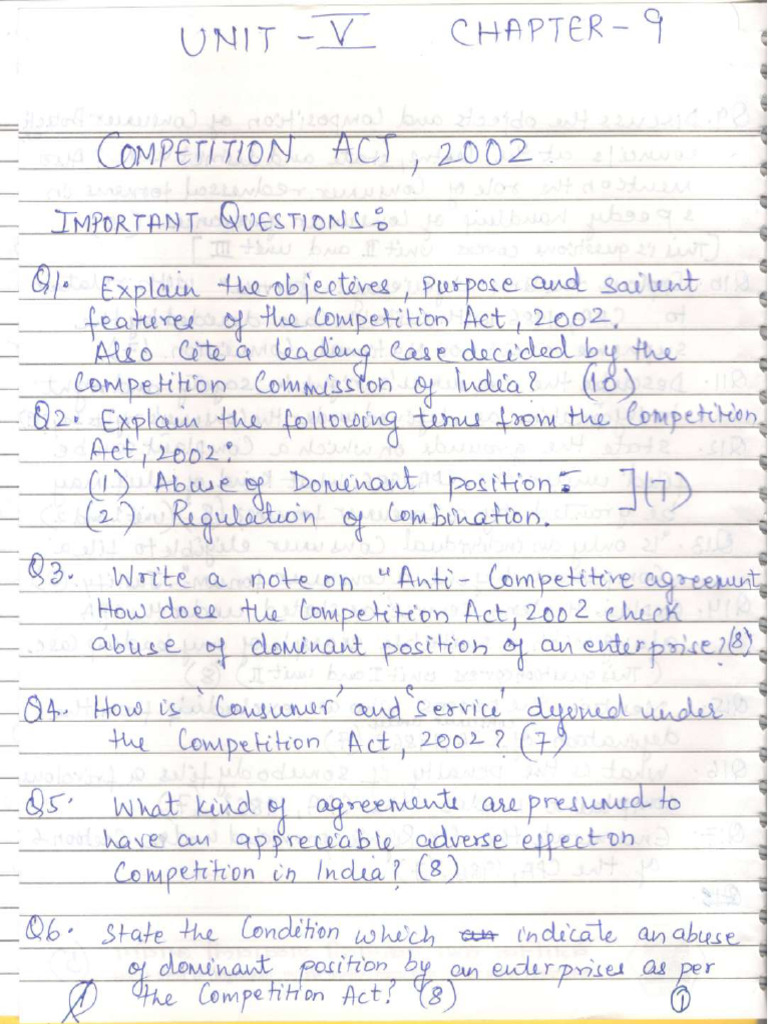 UNIT - V CHAPTER - 9
COMPETITION ACT, 2002
IMPORTANT QUESTIONS:
Q1. Explain the objectives, purpose and sailent
features of the Competition Act, 2002.
Also Cite a leading Case decided by the
Competition Commission of India? (10)
Q2. Explain the following terms from the Competition
Act, 2002:
(1) Abuse of Dominant position:- ] (7)
(2) Regulation of Combination.
Q3. Write a note on "Anti-Competitive agreement
How does the Competition Act, 2002 check
abuse of dominant position of an enterprise? (8)
Q4. How is 'Consumer' and 'Service' defined under
the Competition Act, 2002? (7)
Q5. What kind of agreements are presumed to
have an appreciable adverse effect on
Competition in India? (8)
Q6. State the Condition which indicate an abuse
of dominant position by an enterprises as per
the Competition Act? (8) 1